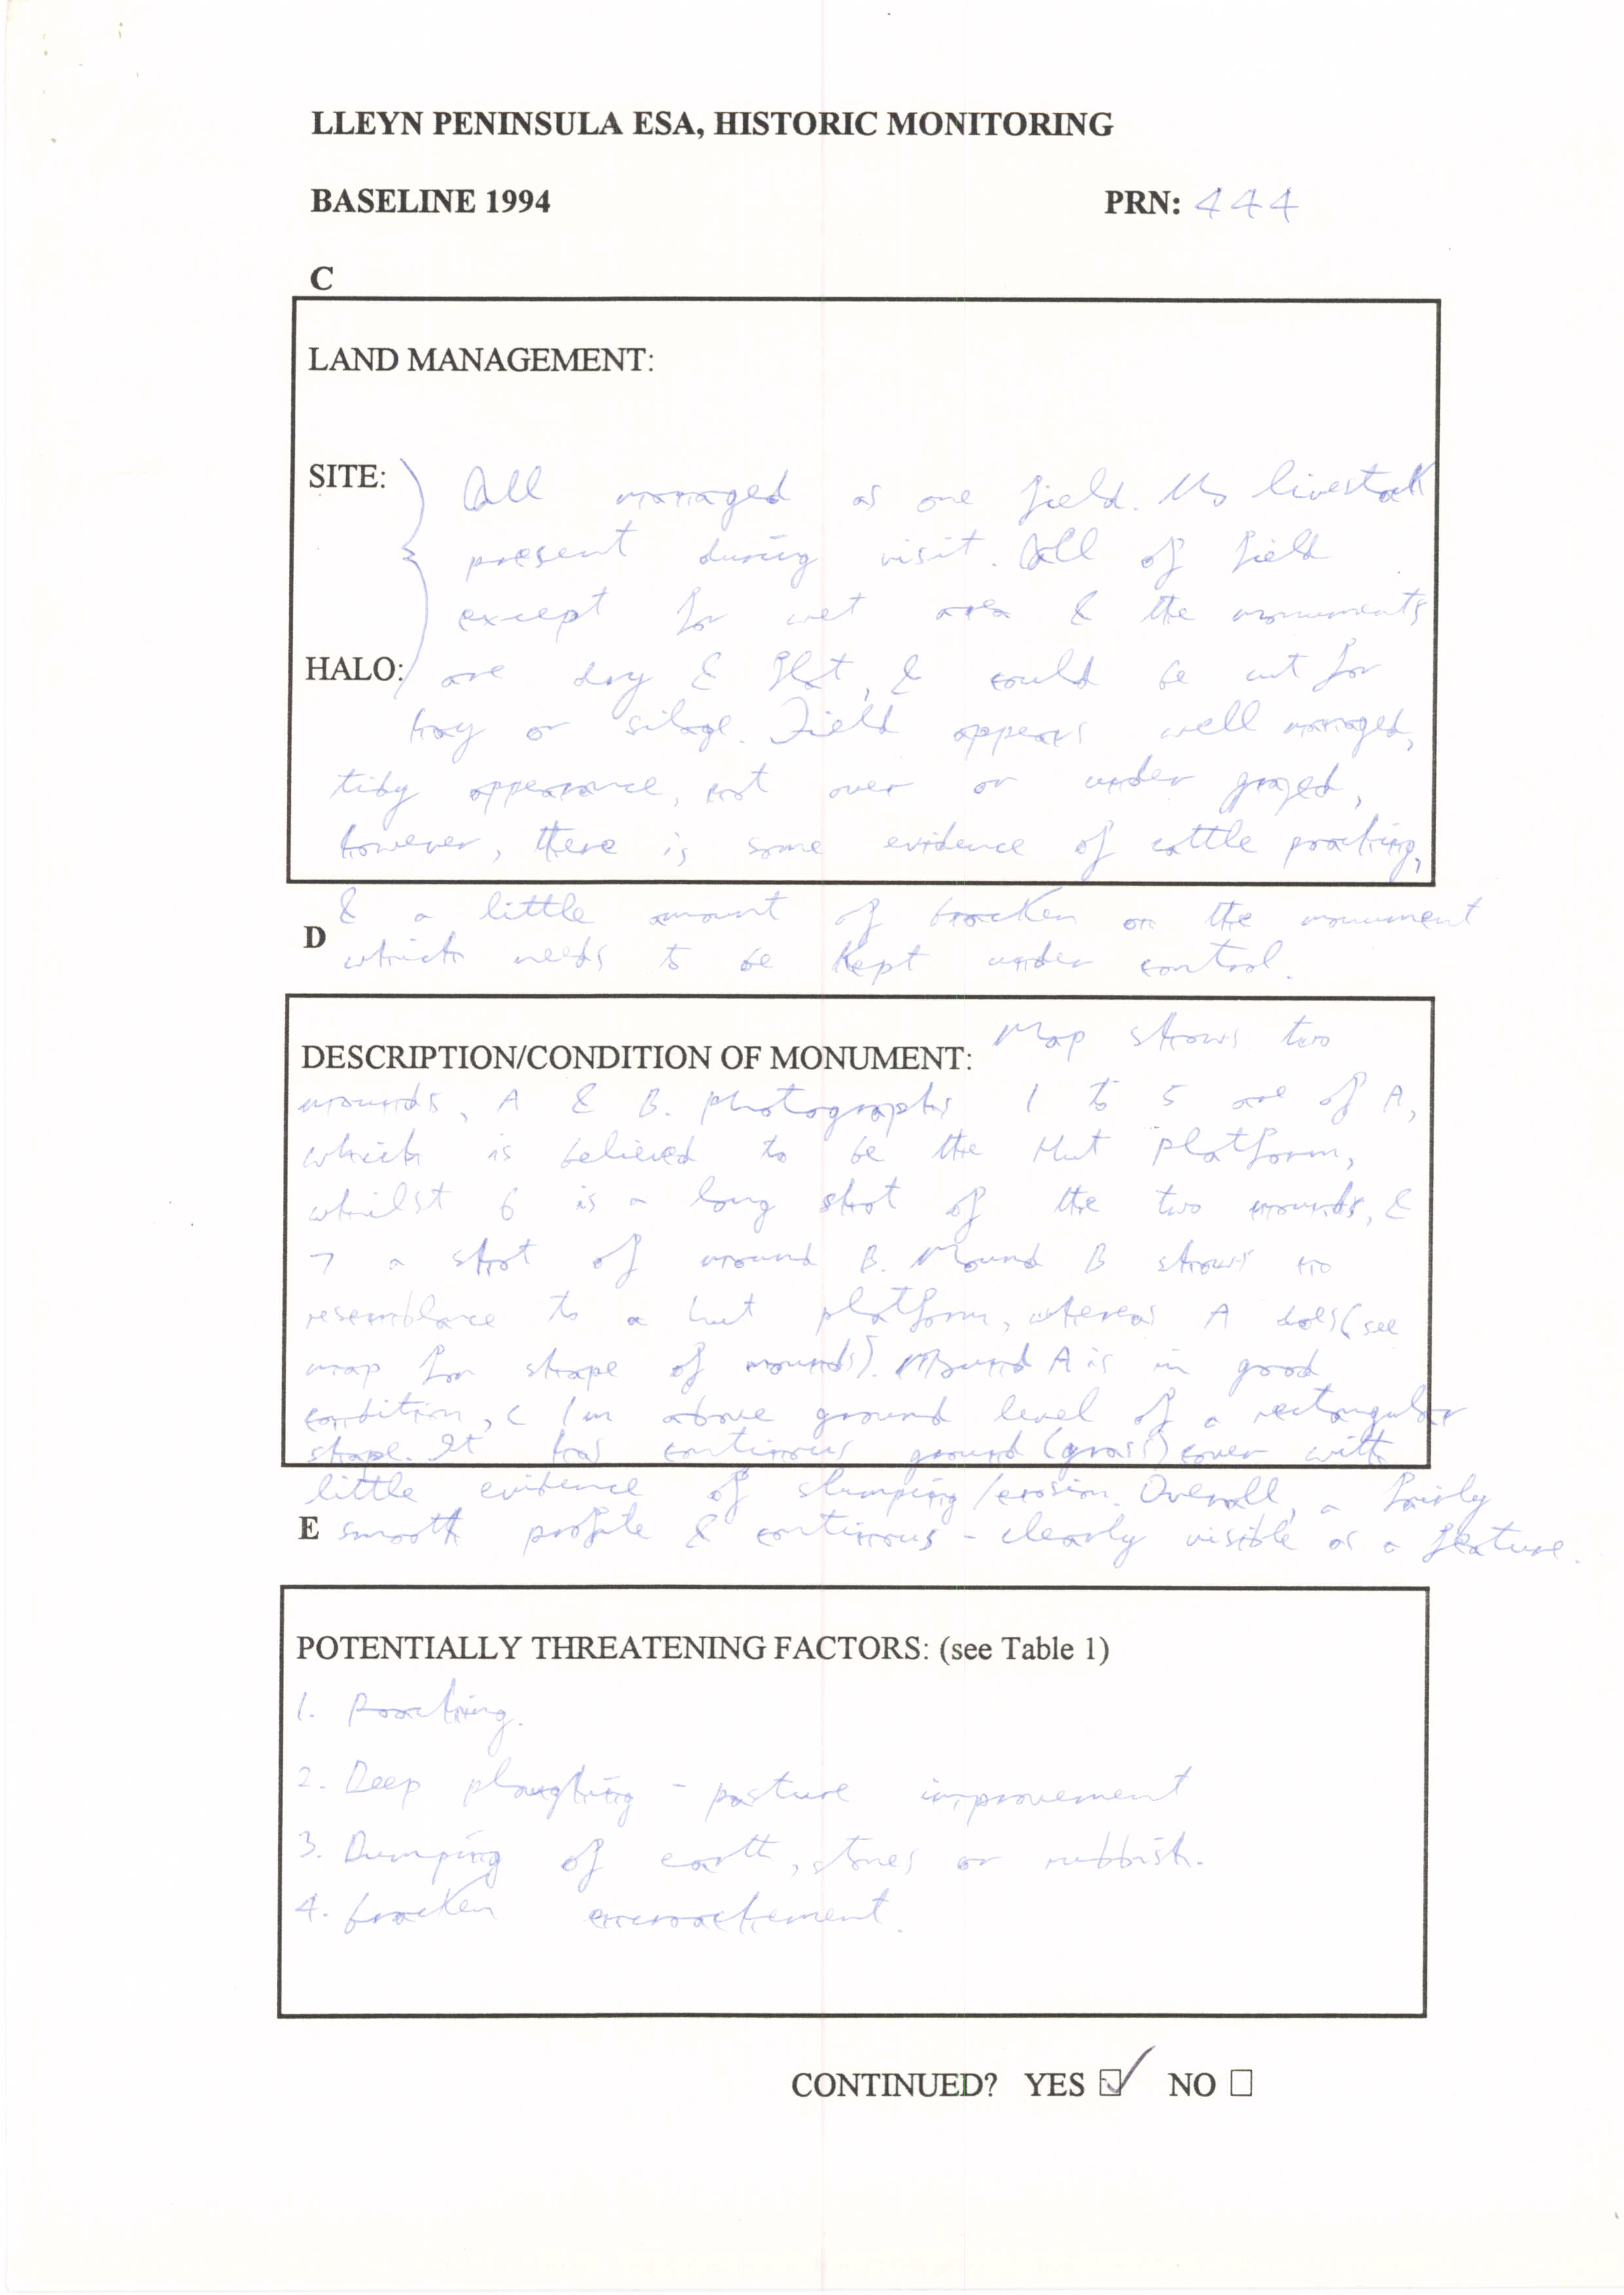 LLEYN PENINSULA ESA, HISTORIC MONITORING
BASELINE 1994 PRN: 444
C
LAND MANAGEMENT:
SITE: All managed as one field. No livestock
present during visit. All of field
except for wet area & the monuments
HALO: are dry & flat, & could be cut for
hay or silage. Field appears well managed,
tidy appearance, not over or under grazed,
however, there is some evidence of cattle poaching,
& a little amount of bracken on the monument
D which needs to be kept under control.
DESCRIPTION/CONDITION OF MONUMENT: Map shows two
mounds, A & B. Photographs 1 to 5 are of A,
which is believed to be the Hut platform,
whilst 6 is a long shot of the two mounds, &
7 a shot of mound B. Mound B shows no
resemblance to a hut platform, whereas A does (see
map for shape of mounds). Mound A is in good
condition, c 1m above ground level of a rectangular
shape. It has continous ground (grass) cover with
little evidence of slumping/erosion. Overall, a fairly
E smooth profile & continous - clearly visible as a feature.
POTENTIALLY THREATENING FACTORS: (see Table 1)
1. Poaching.
2. Deep ploughing - pasture improvement
3. Dumping of earth, stones or rubbish.
4. bracken encroachement.
CONTINUED? YES ☑ NO ☐